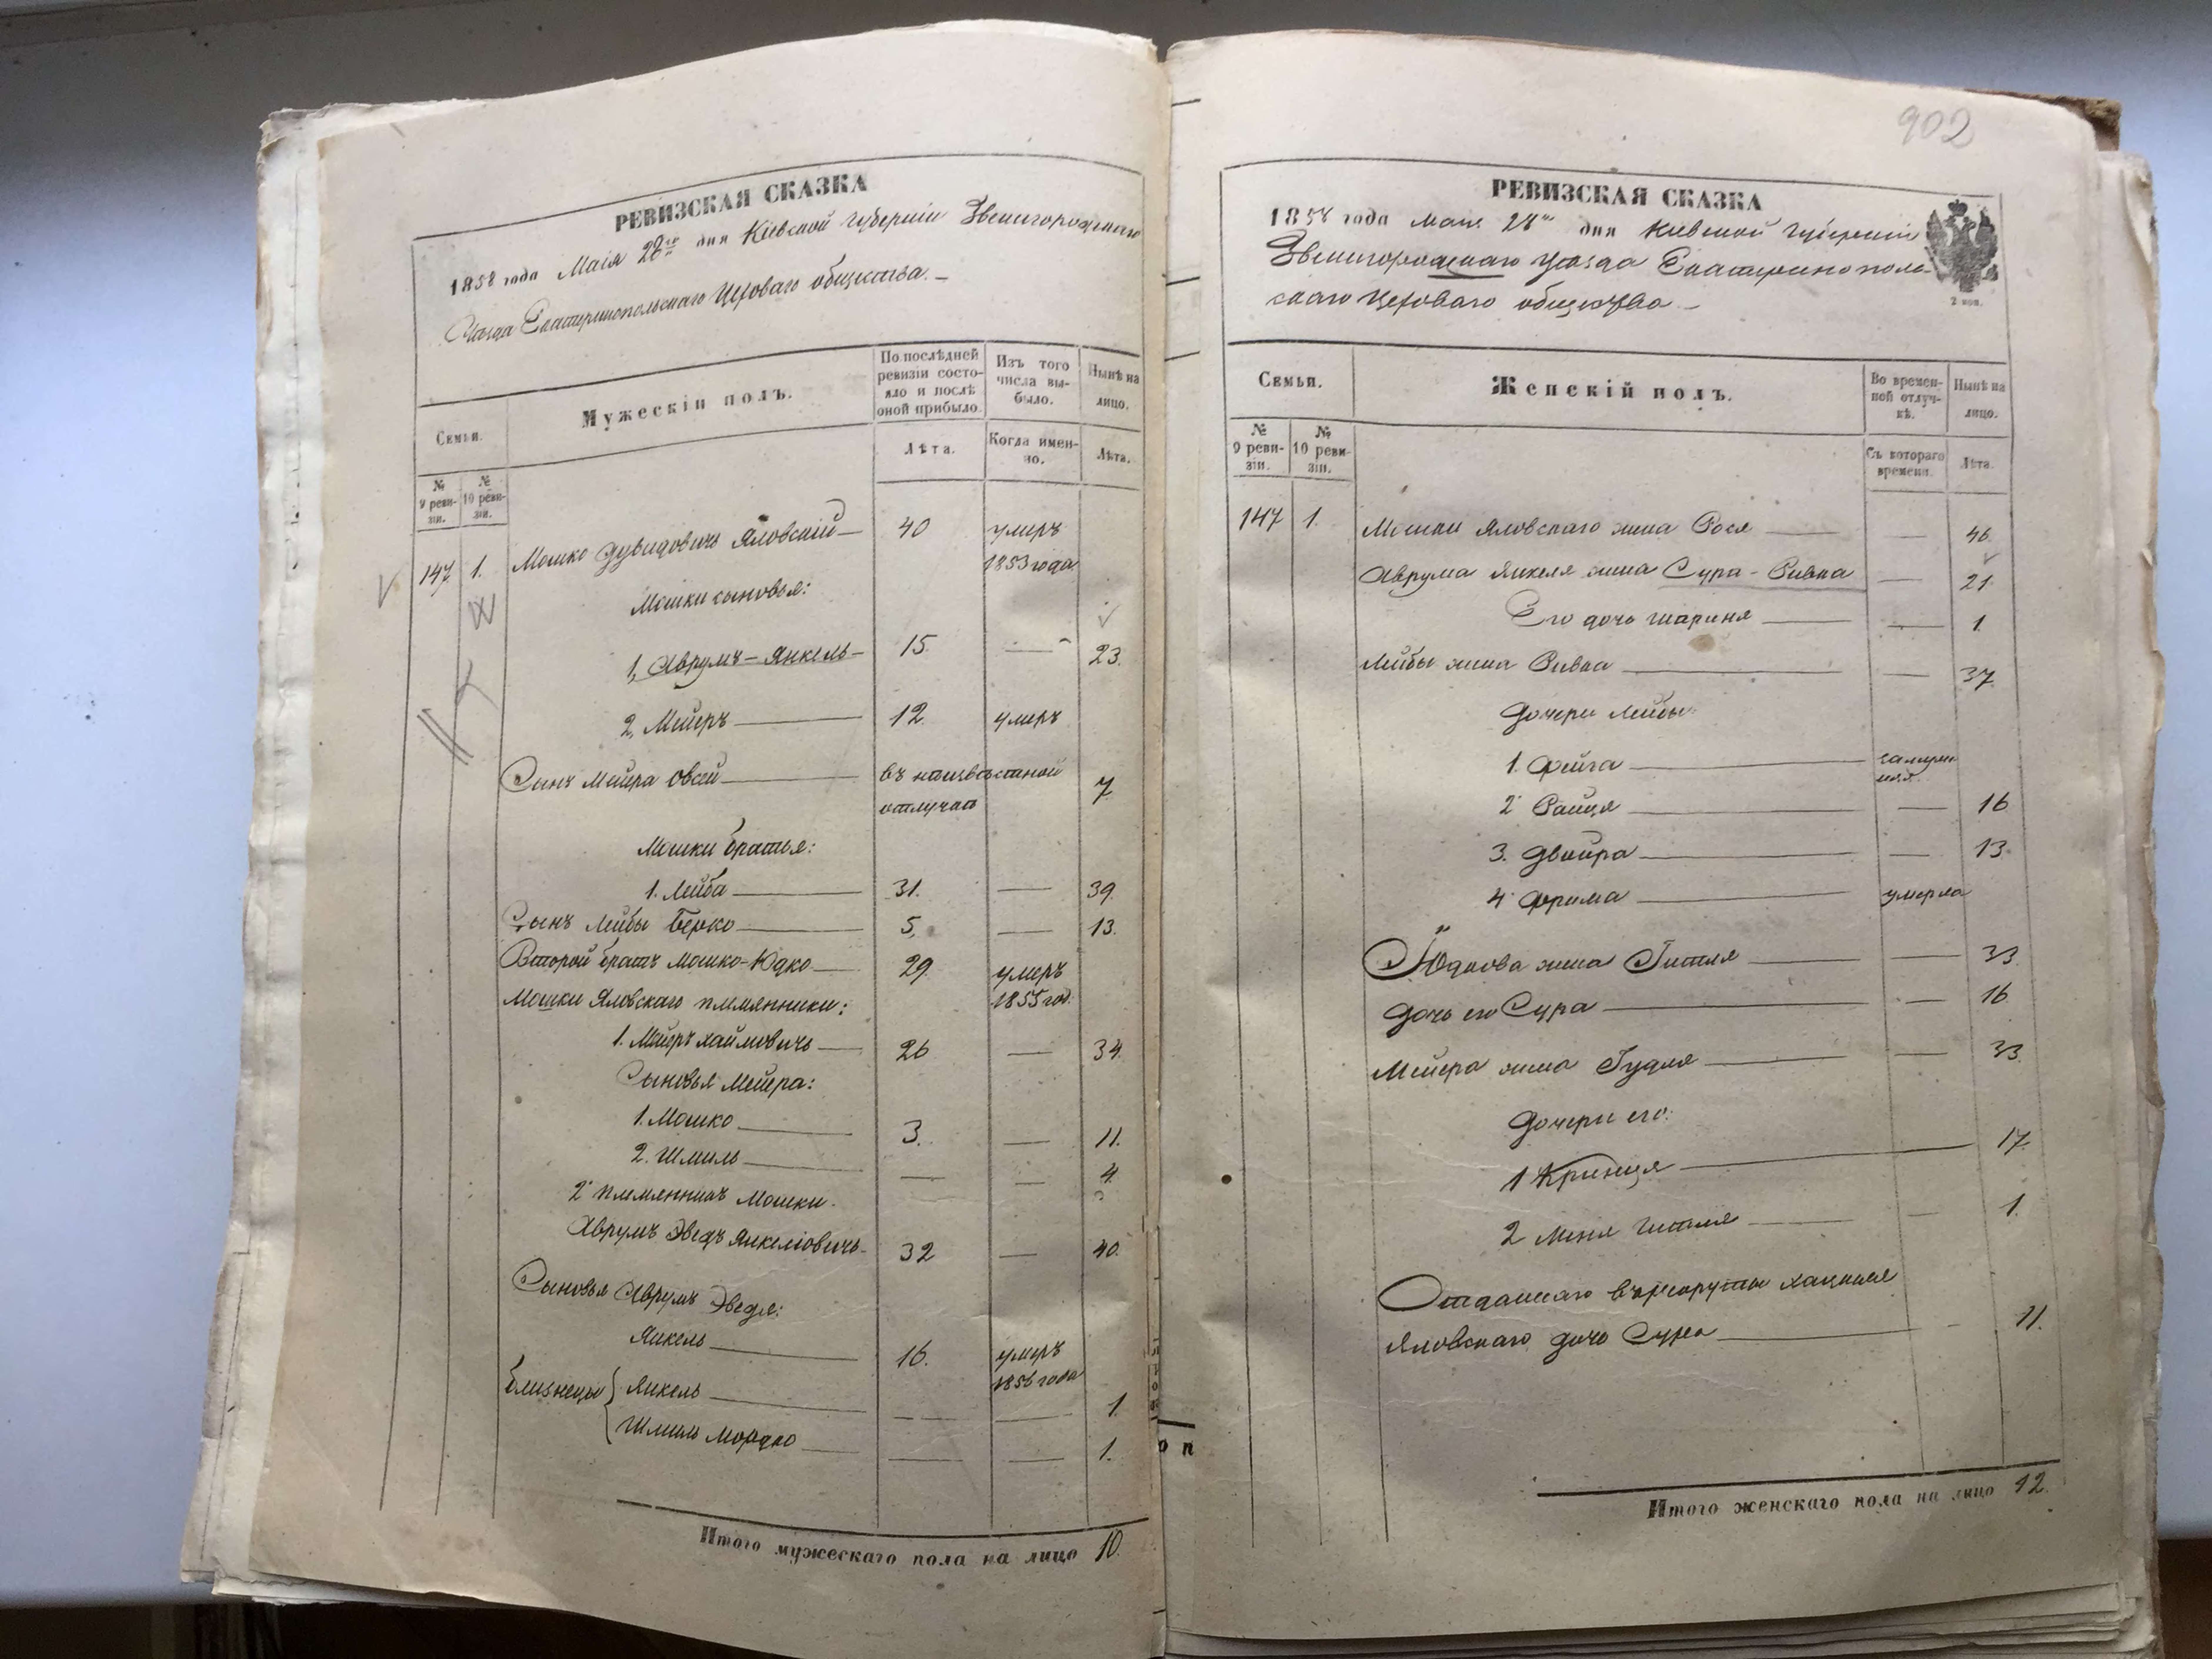 РЕВИЗСКАЯ СКАЗКА
1858 года Маія 28го дня Кіевской губерніи Звенигородскаго
Уѣзда Екатеринопольскаго Цеховаго общества. –
Семьи.
№ 9 ревизіи.
№ 10 ревизіи.
Мужескій полъ.
По послѣдней ревизіи состояло и послѣ оной прибыло.
Лѣта.
Изъ того числа выбыло.
Когда именно.
Нынѣ на лицо.
Лѣта.
147 1. Мошко Дувидовичъ Яловскій — 40 умеръ
1853 года
Мошки сыновья:
1, Аврумъ – Янкель — 15 — 23.
2, Мейеръ — 12. умеръ
Сынъ Мейра Овсей — въ неизвѣстной
отлучкѣ 7
Мошки братья:
1. Лейба — 31. — 39.
Сынъ Лейбы Берко — 5, — 13.
Второй братъ Мошко-Юдко — 29. умеръ
Мошки Яловскаго племянники: 1855 год.
1. Мейеръ Хаймовичъ — 26 — 34.
Сыновья Мейера:
1. Мошко — 3. — 11.
2. Шмиль — — — 4.
2й племянникъ Мошки.
Аврумъ Эведъ Янкеліовичъ — 32 — 40.
Сыновья Аврумъ Эведя:
Янкель — 16. умеръ
1856 года
близнецы { Янкель — — — 1.
Шмиль Мордко — — — 1.
Итого мужескаго пола на лицо 10.
902
РЕВИЗСКАЯ СКАЗКА
1858 года Маія 28го дня Кіевской Губерніи
Звенигородскаго уѣзда Екатеринополь-
скаго Цеховаго общества –
2 коп.
Семьи.
№ 9 ревизіи.
№ 10 ревизіи.
Женскій полъ.
Во временной отлучкѣ.
Съ котораго времени.
Нынѣ на лицо.
Лѣта.
147 1. Мошки Яловскаго жена Рося — — 46.
Аврума Янкеля жена Сура - Ривка — 21
Его дочь Шариня — — 1.
Лейбы жена Ривка — — 37
Дочери Лейбы:
1. Фейга — замужняя
2. Райця — — 16
3. Двойра — — 13.
4. Фрима — умерла
Юдкова жена Гитля — — 33
Дочь его Сура — — 16
Мейера жена Гудля — — 33.
Дочери его:
1 Кринця — 17.
2 Меня Гитля — — 1.
Отданнаго въ рекруты
Яловскаго дочь Сура — – 11.
Итого женскаго пола на лицо 12.